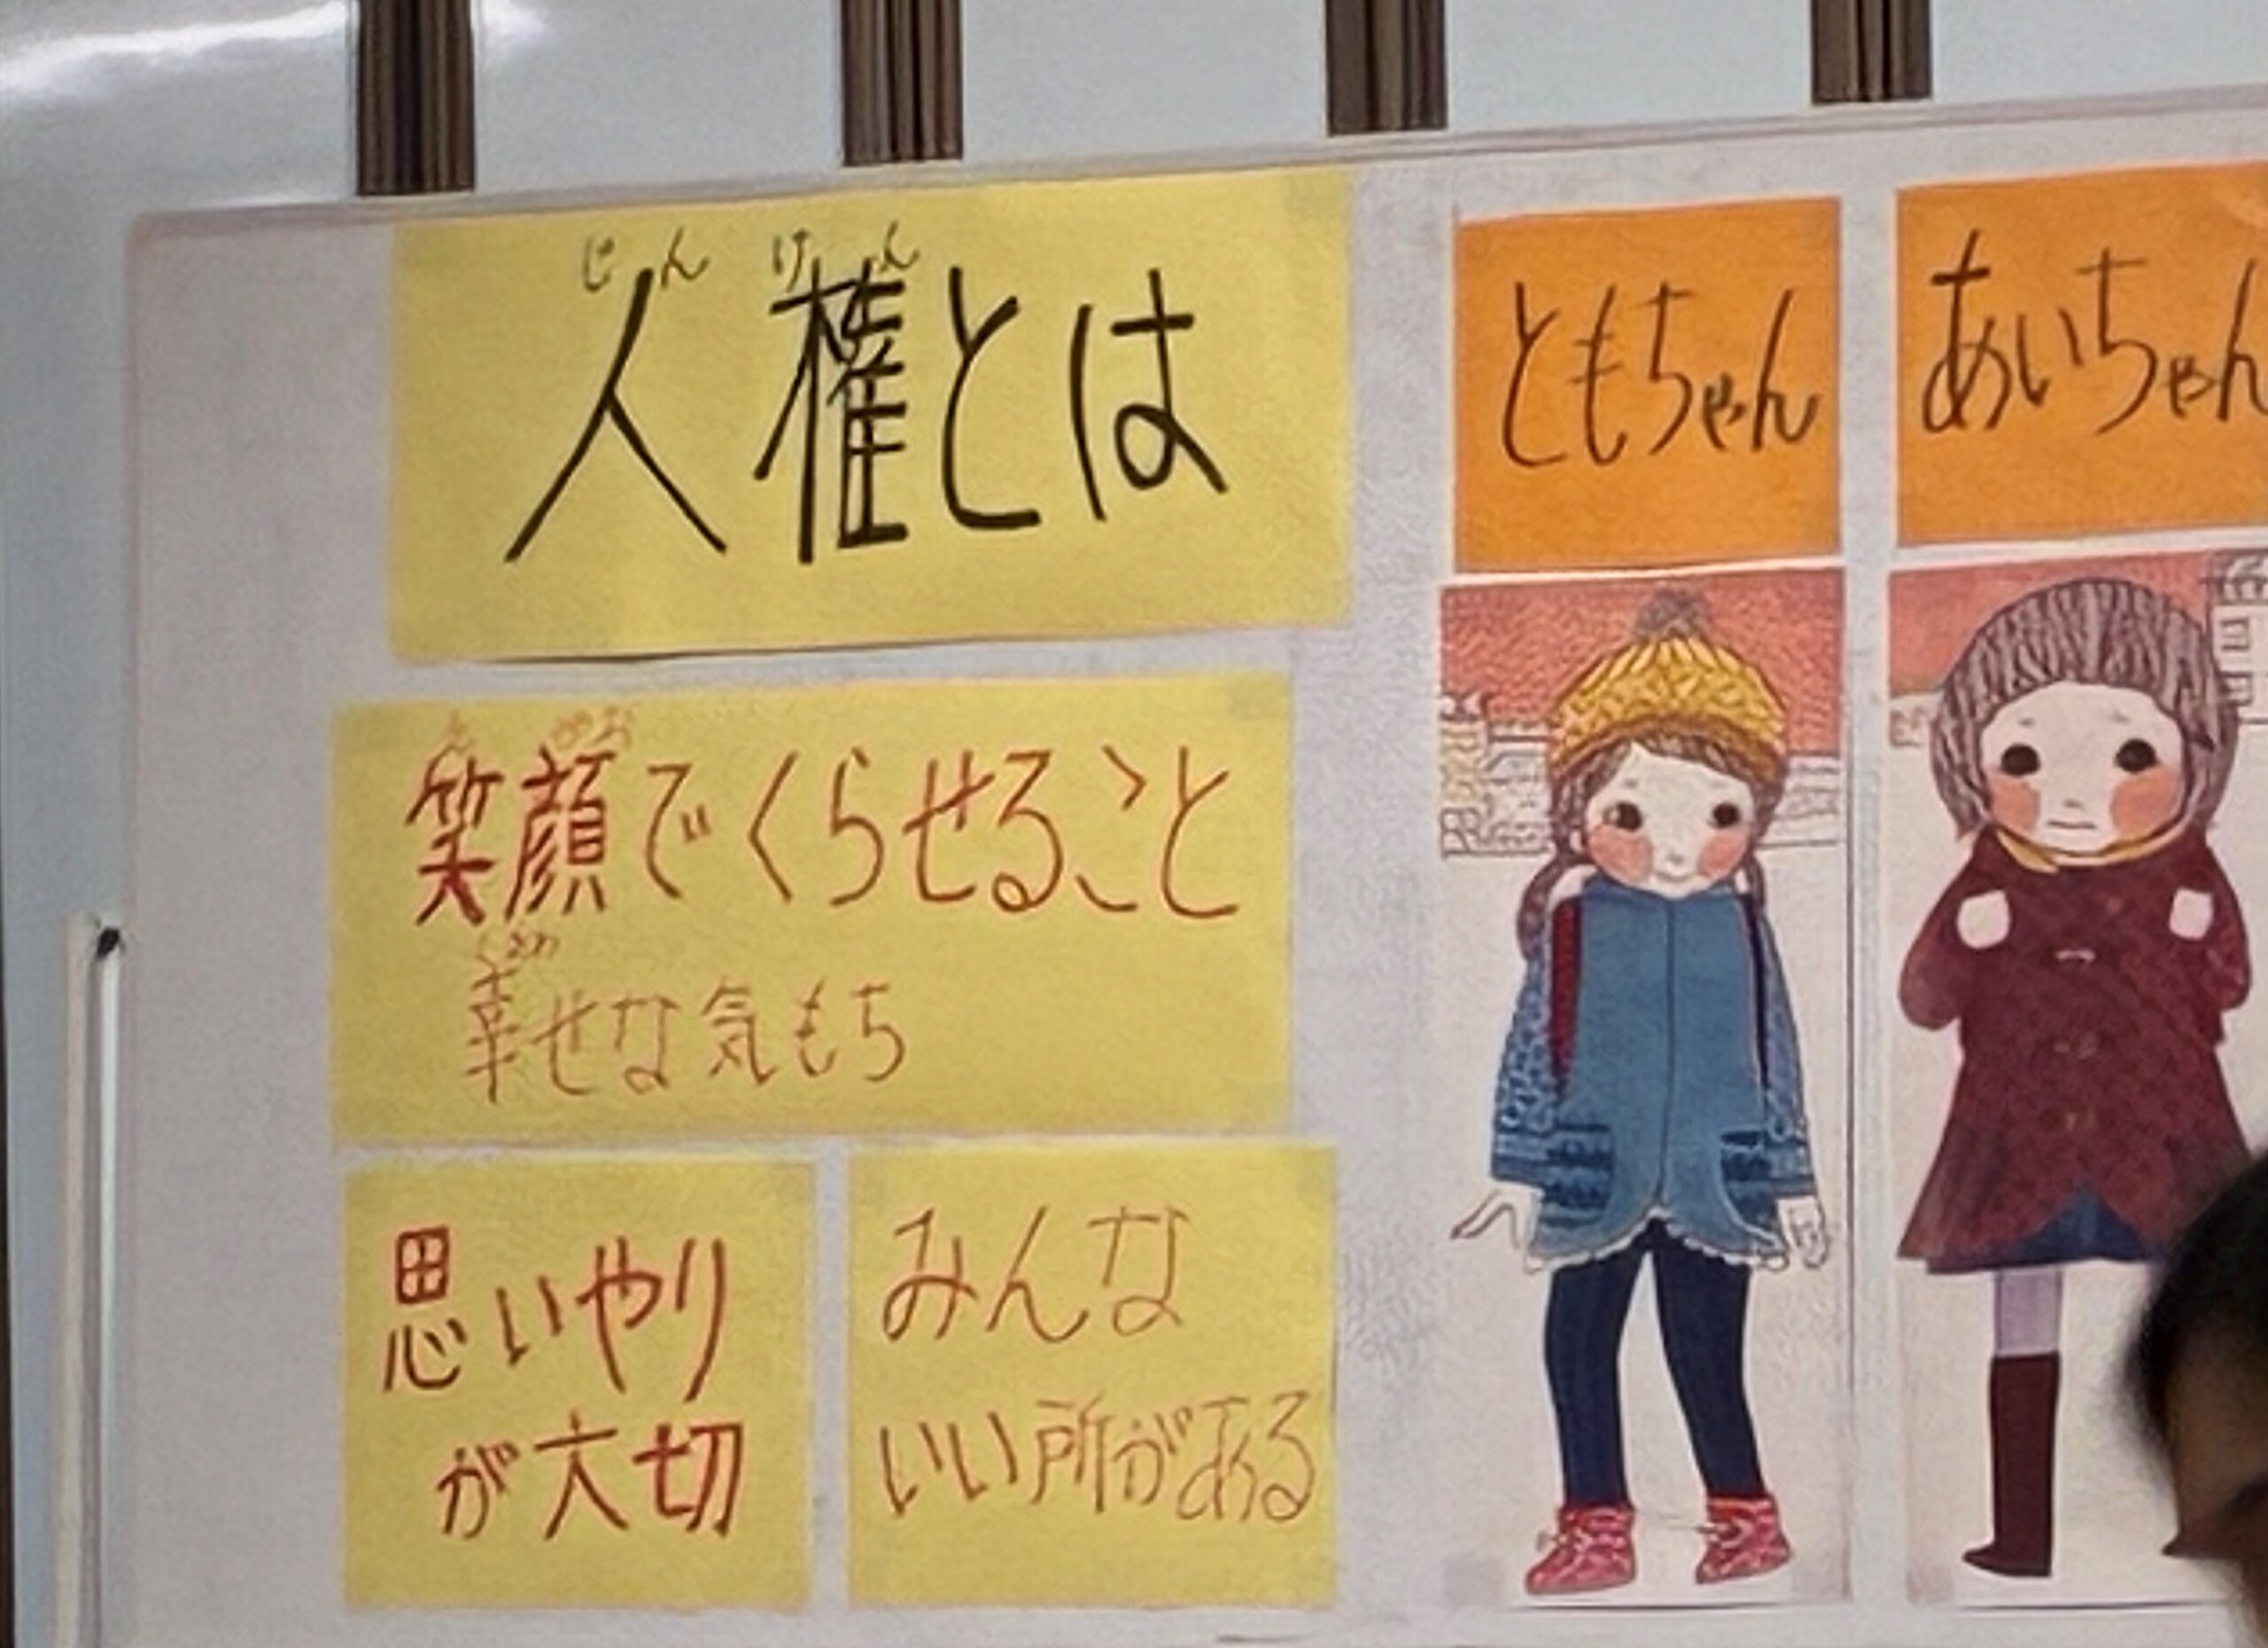 じんけん
人権とは
えがお
笑顔でくらせること
しあわ
幸せな気もち
思いやり
が大切
みんな
いい所がある
ともちゃん
あいちゃん